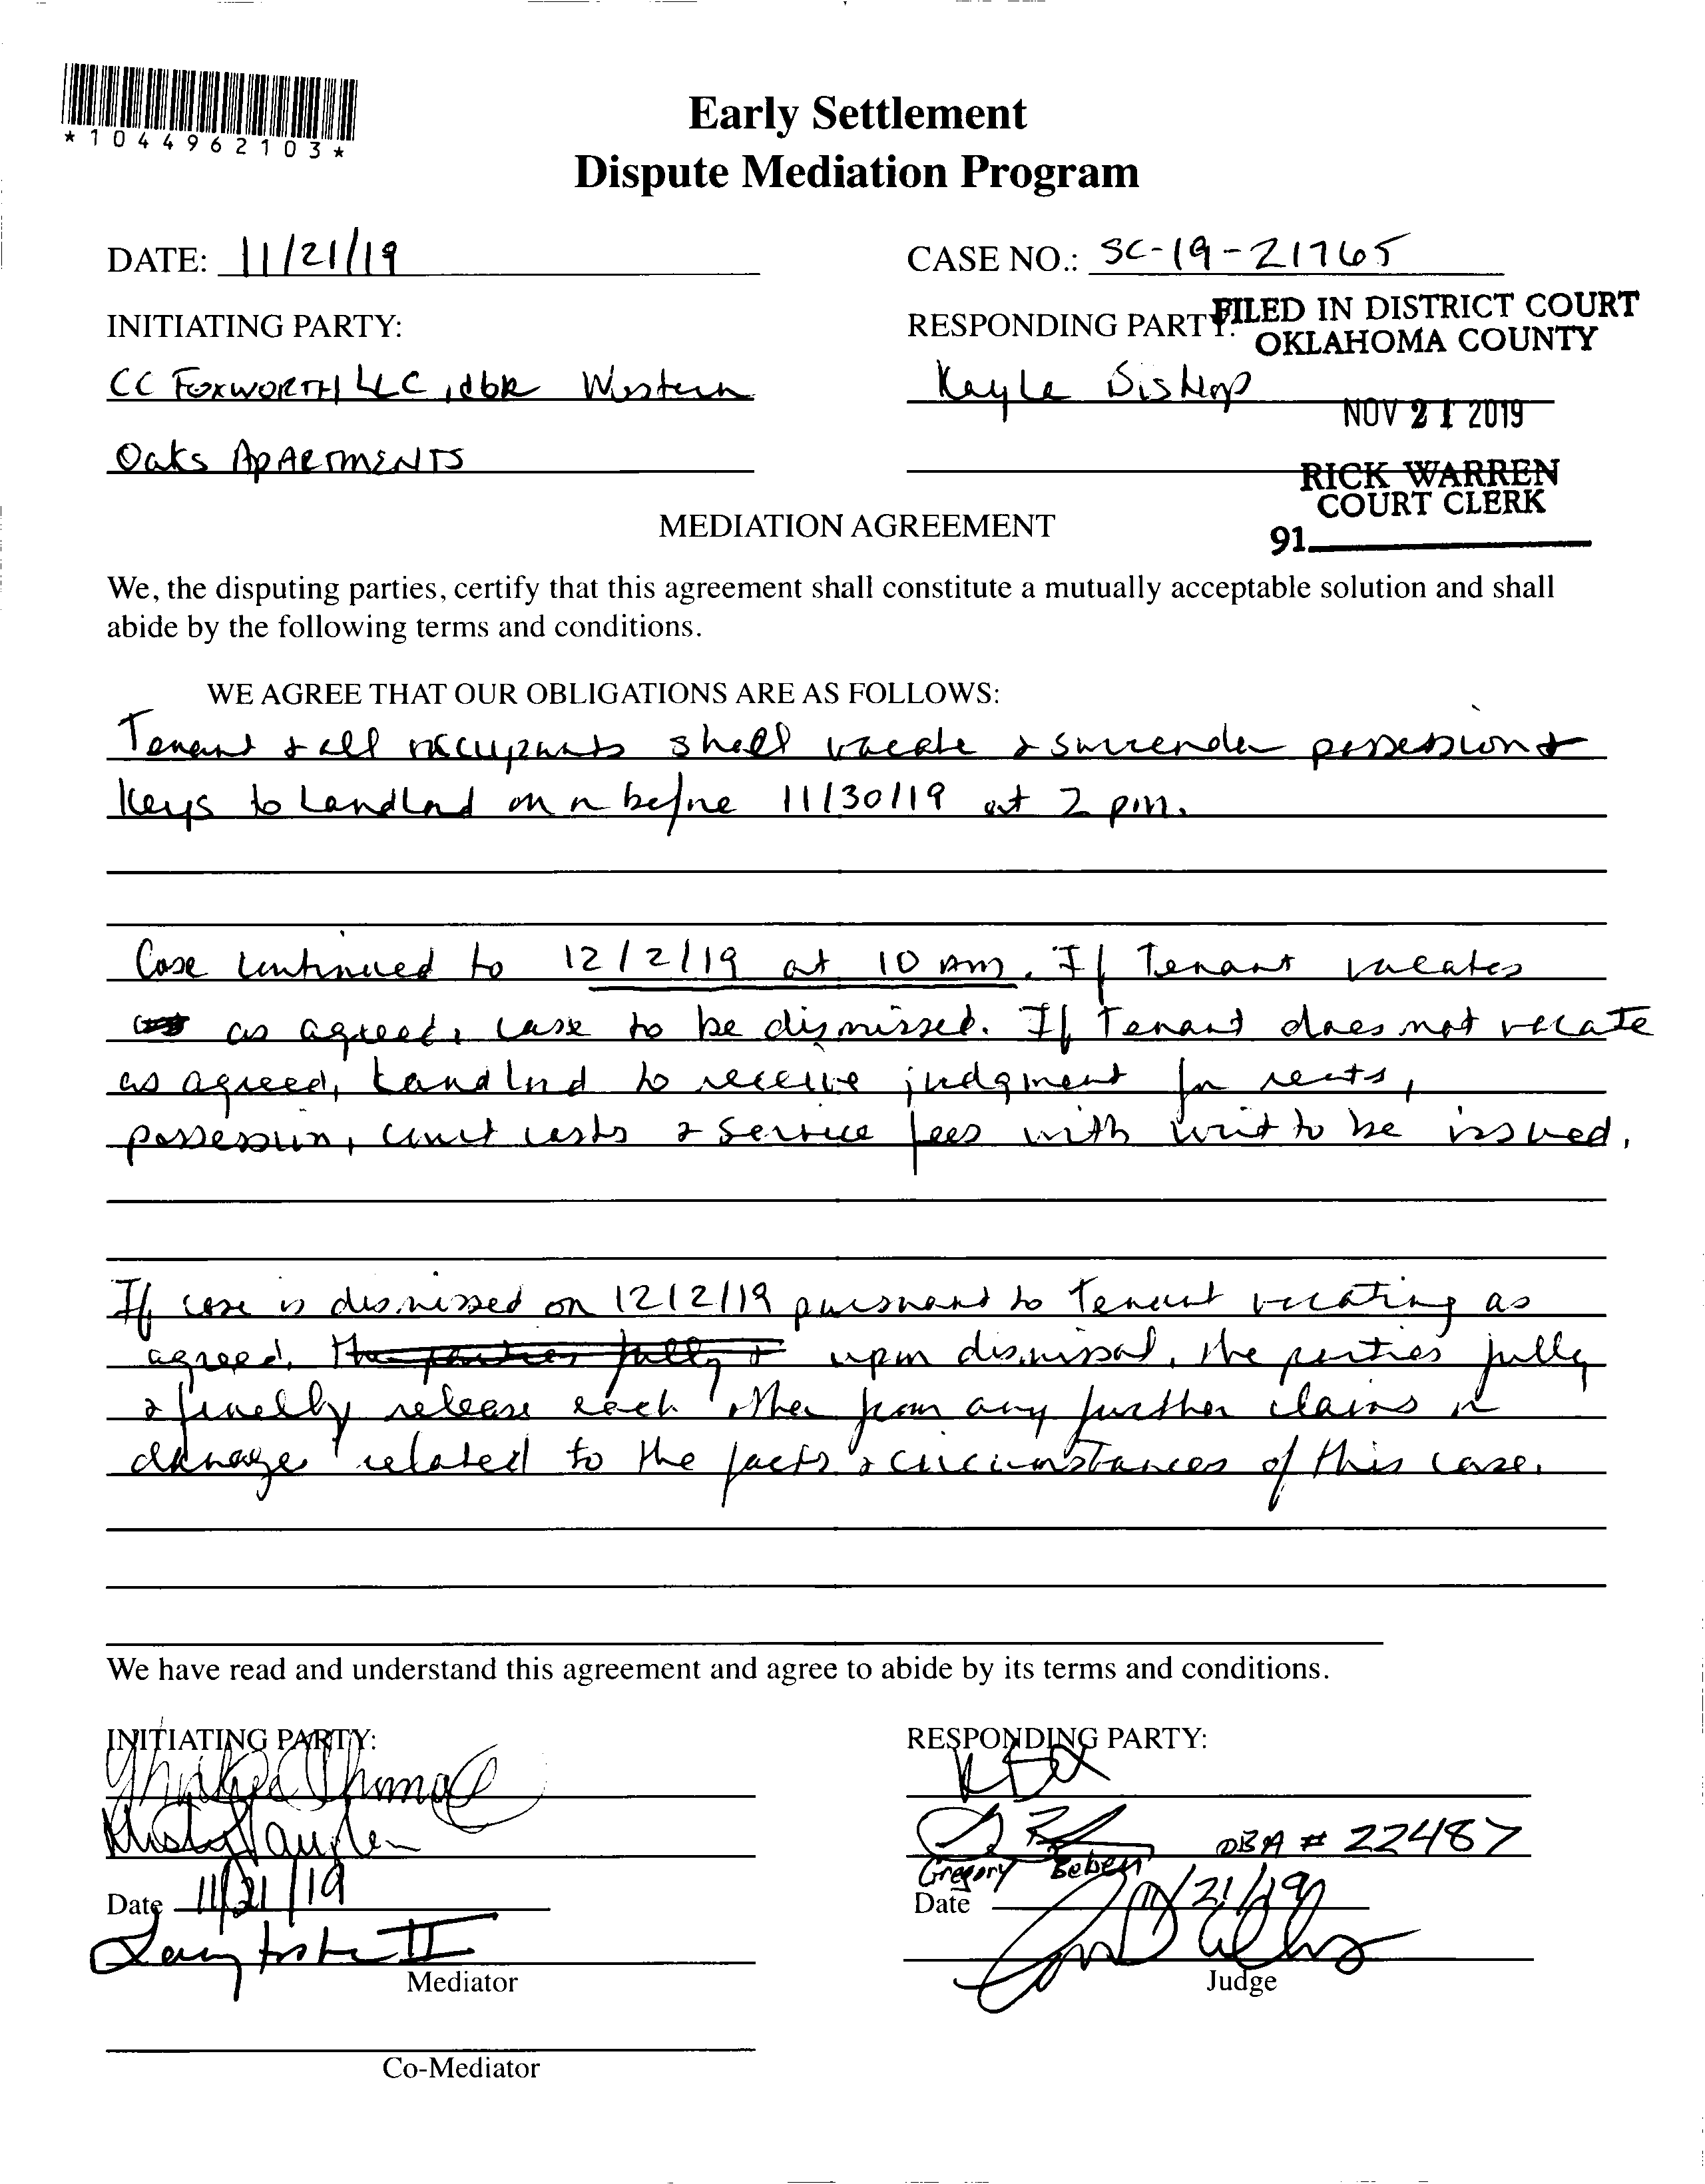 *1044962103*
Early Settlement
Dispute Mediation Program
DATE: 11/21/19
CASE NO.: SC-19-21765
INITIATING PARTY:
RESPONDING PARTY:
FILED IN DISTRICT COURT
OKLAHOMA COUNTY
CC FOXWORTH LLC, dba Western
Kayla Bishop
NOV 21 2019
Oaks Apartments
RICK WARREN
COURT CLERK
MEDIATION AGREEMENT
91
We, the disputing parties, certify that this agreement shall constitute a mutually acceptable solution and shall
abide by the following terms and conditions.
WE AGREE THAT OUR OBLIGATIONS ARE AS FOLLOWS:
Tenant & all occupants shall vacate & surrender possession &
Keys to Landlord on or before 11/30/19 at 2 pm.
Case continued to 12/2/19 at 10 am. If Tenant vacates
as agreed, case to be dismissed. If Tenant does not vacate
as agreed, Landlord to receive judgment for rents,
possession, court costs & service fees with writ to be issued.
If case is dismissed on 12/2/19 pursuant to Tenant vacating as
agreed, the parties fully & upon dismissal, the parties fully
& finally release each other from any further claims or
damages related to the facts & circumstances of this case.
We have read and understand this agreement and agree to abide by its terms and conditions.
INITIATING PARTY:
RESPONDING PARTY:
OBA # 22487
Gregory Beben
Date 11/21/19
Date 11/21/19
Mediator
Judge
Co-Mediator